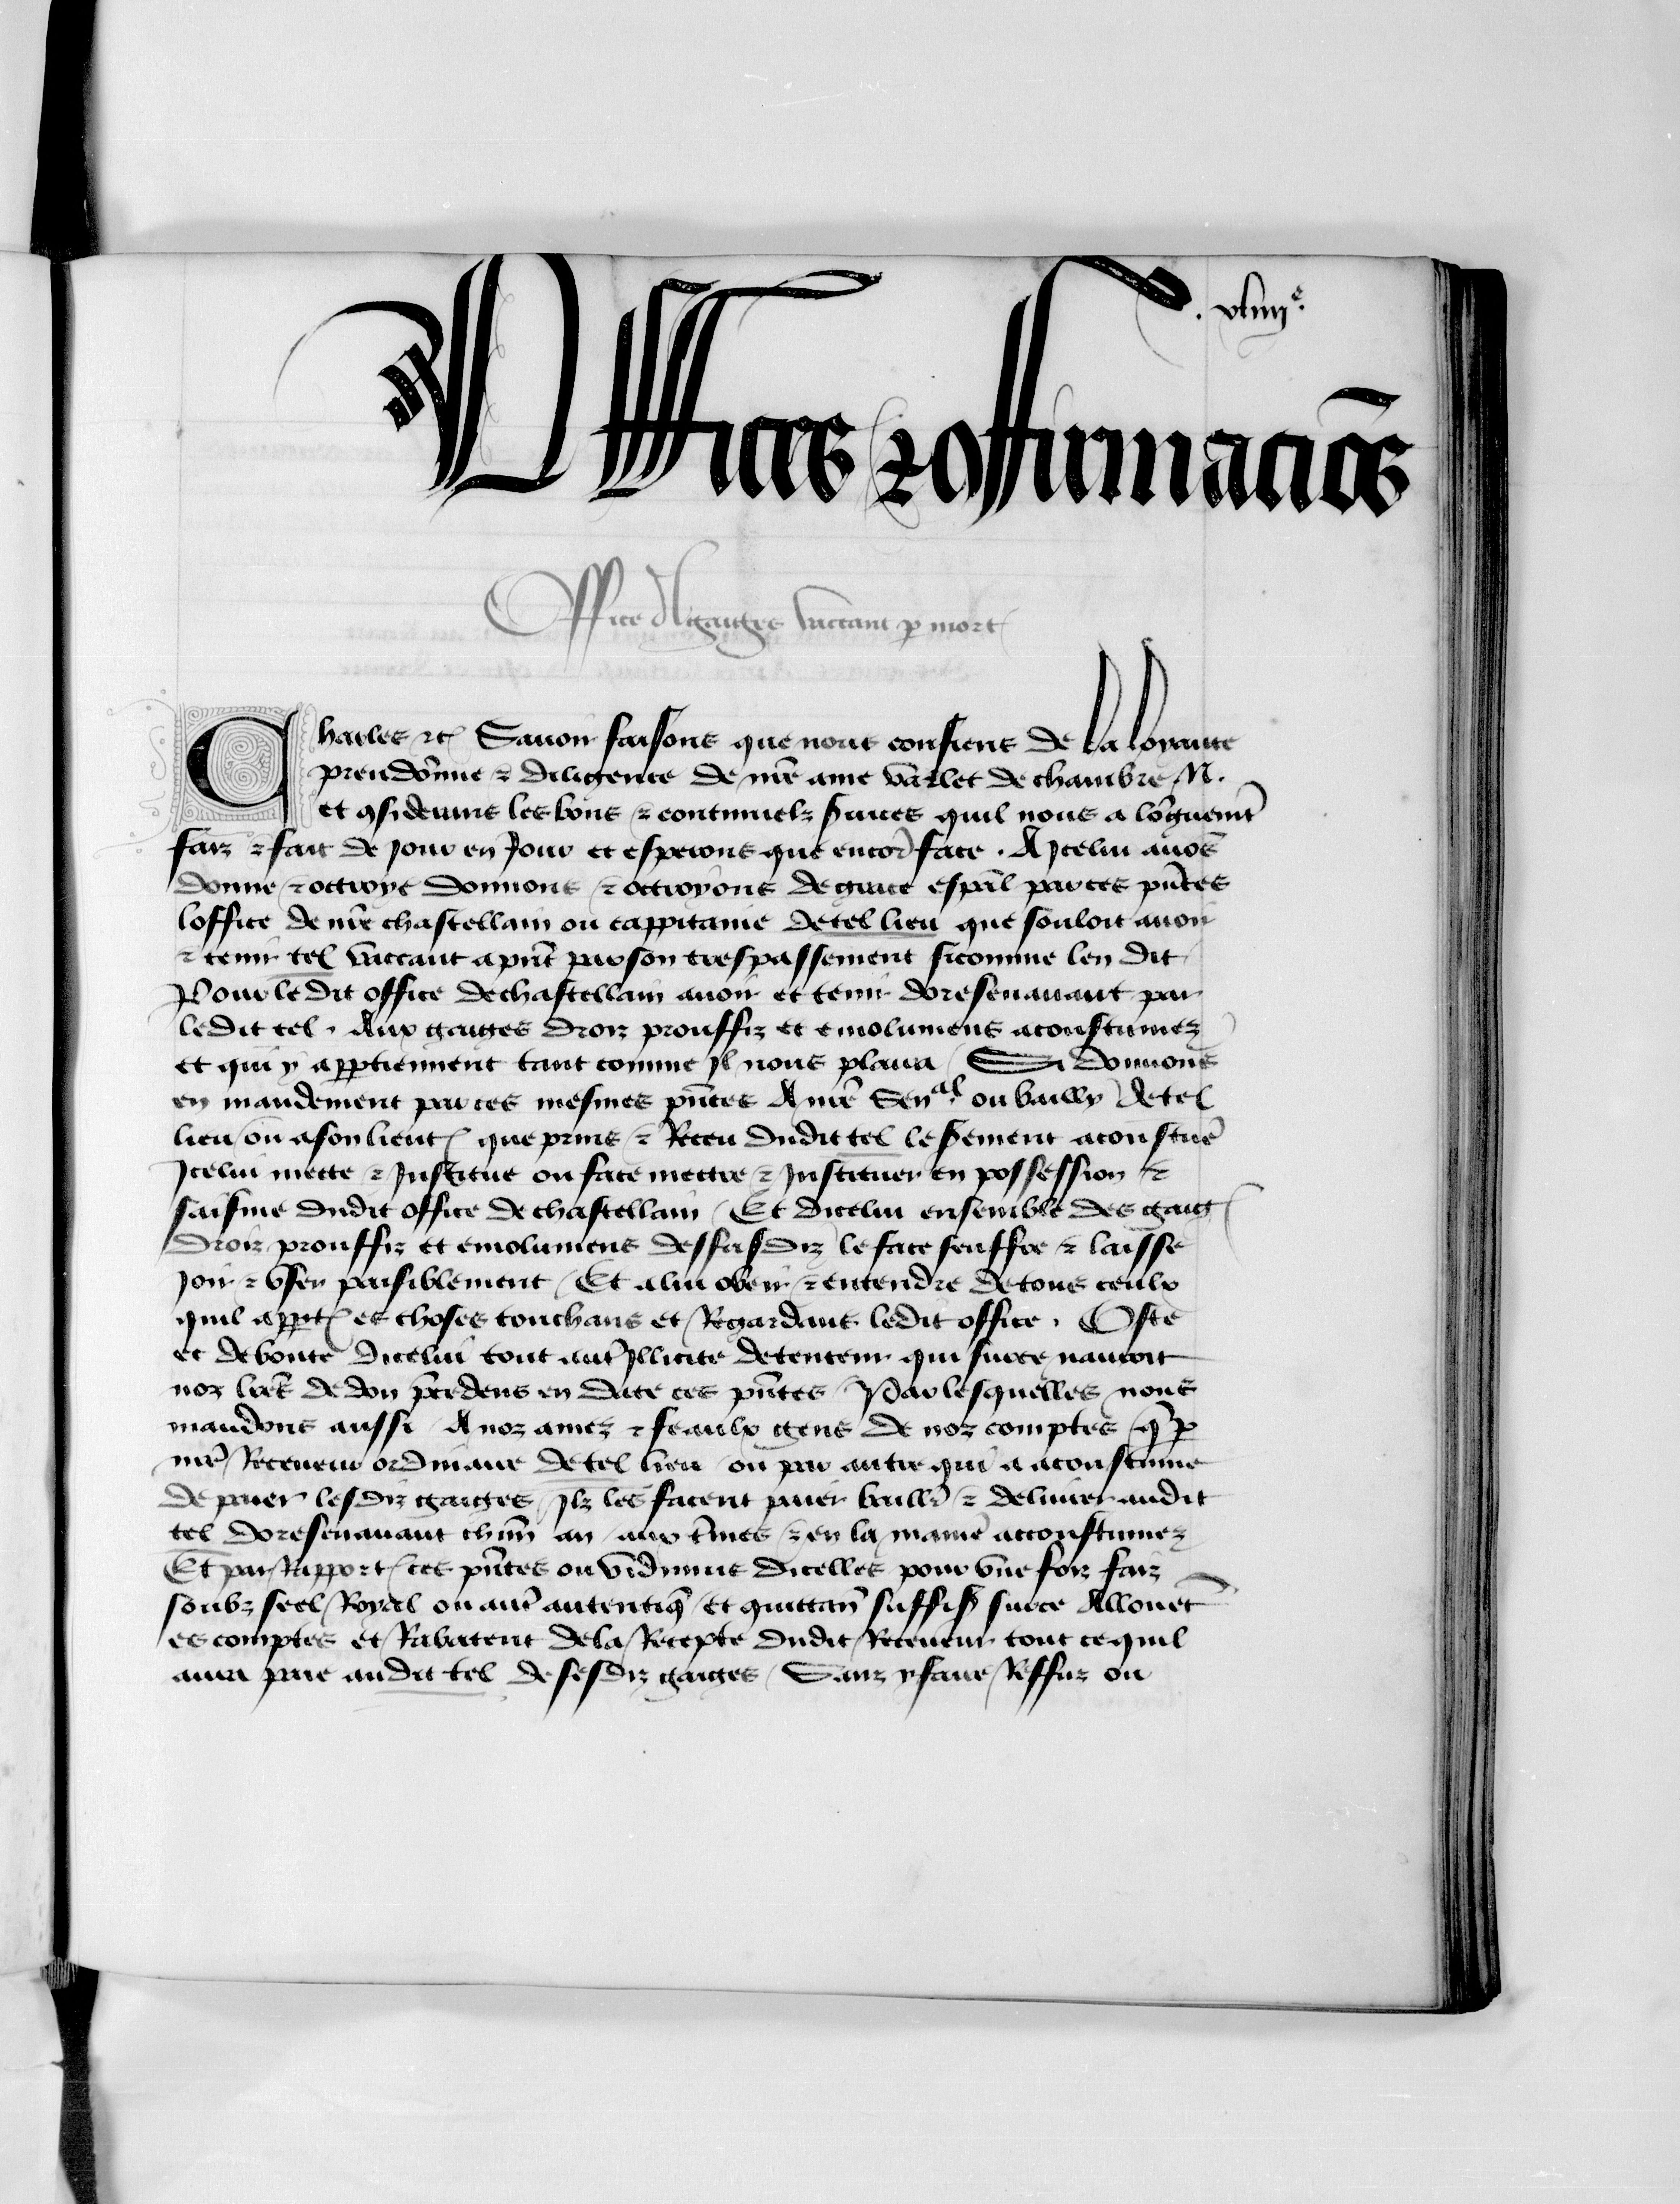 . xliiij e.
Offices & cõffirmaciõs
Office A gaiges vaccant p mort
Charles &c Sauoir faisons que nous confiens de la loyaute
preudõmie & diligence de nr̃e ame varlet de chambre N.
et 9siderans les bons & continuelz suices quil nous a lõguemt̃
faiz & fait de Jour en Jour et esperons que encor̃ face . A Jcelui auõs
donne & octroye donnons & octroyons de grace esp̃al par ces pñtes
loffice de nr̃e chastellain ou cappitaine de tel lieu que souloit auoir
& tenir tel vaccant a pñt par son trespassement sicomme len dit
Pour le dit office de chastellain auoir et tenir doresenauant par
ledit tel . Aux gaiges droiz prouffiz et emolumens acoustumez
et qui y appartiennent tant comme Jl nous plaira / Si donnons
en mandement par ces mesmes pñtes A nr̃e Sen al ou bailly de tel
lieu / ou a son lieut que prins & Receu dudit tel le sement acoustũe
Jcelui mette & Institue ou face mettre & Instituer en possession &
saisine dudit office de chastellain / Et dicelui ensemble des gaig
droiz prouffiz et emolumens dessusdiz le face seuffre & laisse
Joir & vser paisiblement / Et a lui obeir & entendre de tous ceulx
quil appt es choses touchans et Regardant ledit office . Oste
et deboute dicelui tout aut̃ Jllicite detenteur qui sur ce nauroit
noz lr̃es de don p̃cedens en date ces pñtes / Par lesquelles nous
mandons aussi A noz amez & feaulx gens de noz comptes / q̃ p
nr̃e Receueur ordinaire de tel lieu ou par autre qui a acoustume
de paier lesdiz gaiges / Jlz les facent paier baill̃ & deliurer audit
tel doresenauant chũn an / aux t̃mes & en la manie acoustumez
Et par Rapport ces pñtes ou vidimus dicelles pour vne foiz faiz
soubz seel Royal ou aut̃ autentiq̃ / Et quittanc̃ suffis sur ce Allouent
es comptes et Rabatent de la Recepte dudit Receueur tout ce quil
aura paie audit tel de sesdiz gaiges / Sanz y faire Reffuz ou